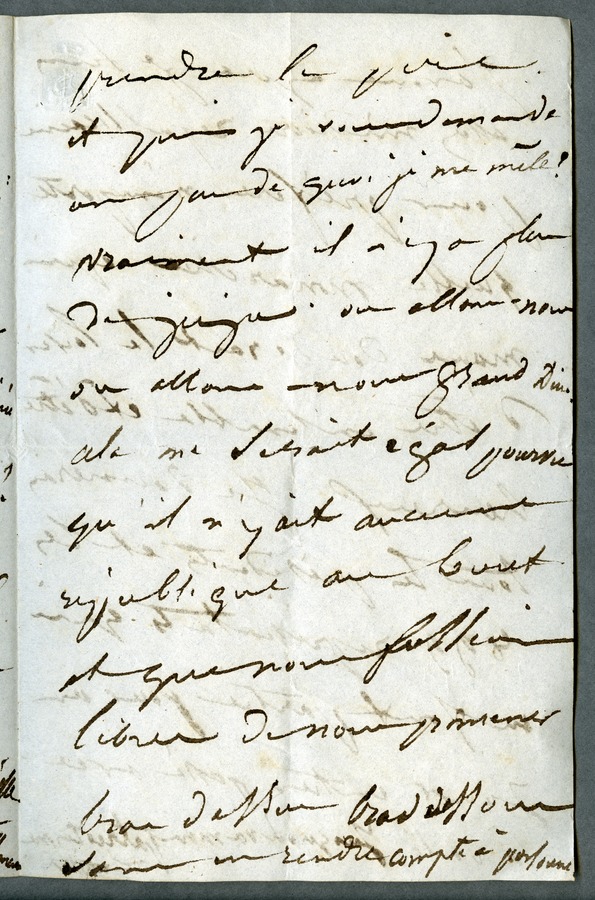 prendre la peine
et puis je vous demande
un peu de quoi je me mêle?
vraiment il n'y a plus
de juges. où allons-nous
où allons-nous grand Dieu
cela me serait égal pourvu
qu'il n'y ait aucune
république au bout
et que nous fussions
libres de nous promener
bras dessus bras dessous
sans en rendre compte à personne